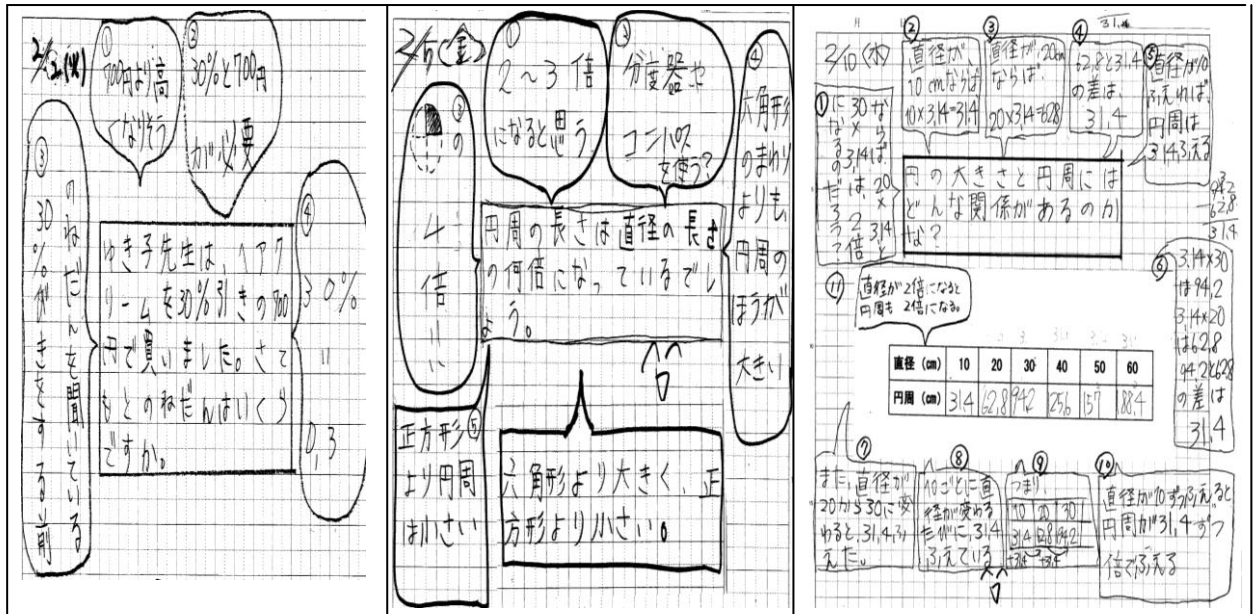 2/2(火)
①
700円より高
くなりそう
②
30%と700円
が必要
③
30%びきをする前
のねだんを聞いている
ゆき子先生は、ヘアク
リームを30%引きの700
円で買いました。さて
もとのねだんはいくら
ですか。
④
30%
=
0,3
2/5(金)
①
2～3倍
になると思う
②
分度器や
コンパス
を使う?
③
の
4倍
④
六角形
のまわり
よりも、
円周の
ほうが
大きい
円周の長さは直径の長さ
の何倍になっているでし
ょう。
⑤
正方形
より円周
は小さい
六角形より大きく、正
方形より小さい。
2/10(水)
①
②
直径が、
10cmならば
10×3.14=31.4
③
直径が、20cm
ならば、
20×3.14=62.8
④
62.8と31.4
の差は、
31.4
⑤
直径が10
ふえれば、
円周は
3.14ふえる
円の大きさと円周には
どんな関係があるのか
な?
94.2
62.8
31.4
⑥
3.14×30
は94.2
3.14×20
は62.8
94.2と62.8
の差は
31.4
⑪
直径が2倍になると
円周も2倍になる。
直径(cm) 10 20 30 40 50 60
円周(cm) 31.4 62.8 94.2 125.6 157 188.4
⑦
また、直径が
20から30に変
わると、31.4ふ
えた。
⑧
10ごとに直
径が変わる
たびに、31.4
ふえている
⑨
つまり、
10 20 30
31.4 62.8 94.2
+31.4 +31.4
⑩
直径が10ずつふえると
円周が31.4ずつ
倍でふえる